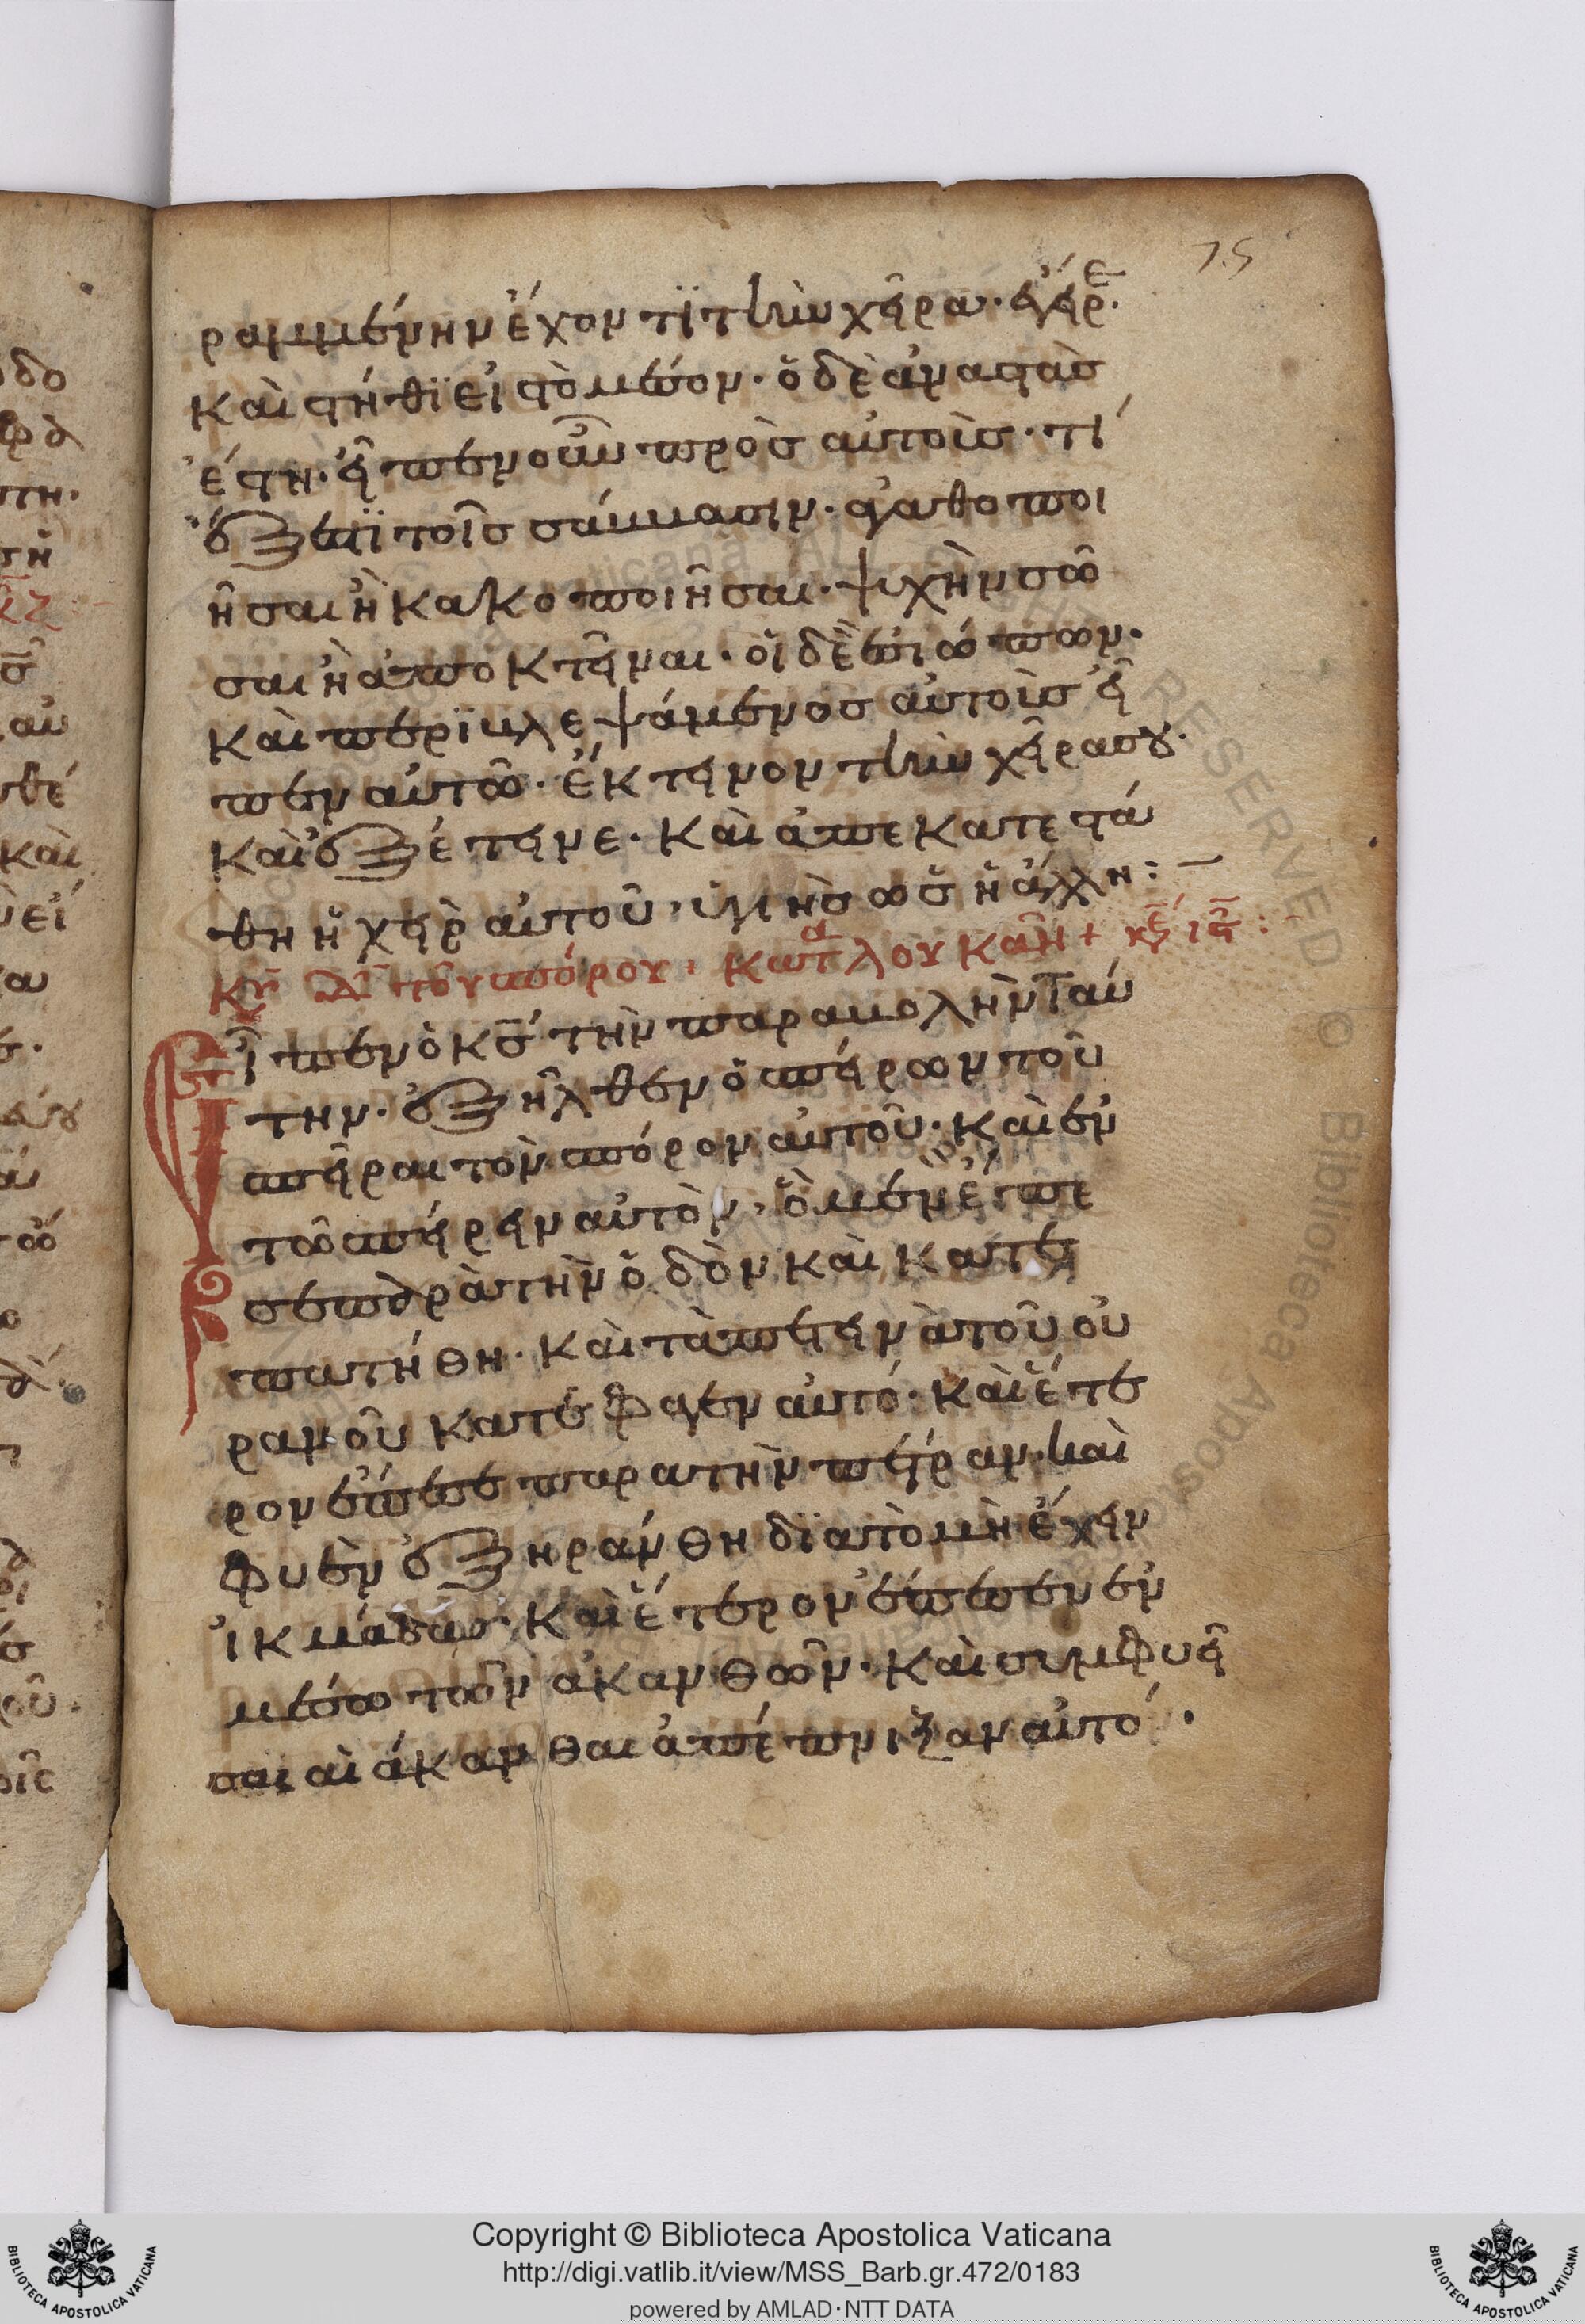 75
ραμμένην ἔχοντϊ τὴν χεῖρα· ἔγειρε.
Καὶ στήθϊ εἰς τὸ μέσον· ὁ δὲ ἀναστὰς
ἔστη· εἶπεν οὖν πρὸς αὐτοὺς· τί
ἔξεστϊ τοῖς σάββασιν· ἀγαθοποι
ῆσαι ἢ κακοποιῆσαι· ψυχὴν σῶ
σαι ἢ ἀποκτεῖναι· οἱ δὲ ἐσιώπων·
Καὶ περϊβλεψάμενος αὐτοὺς εἶ
πεν αὐτῶ· ἔκτεινον τὴν χεῖρα σου·
Καὶ ἐξέτεινε· Καὶ ἀπεκατεστά
θη ἡ χεὶρ αὐτοῦ, ὑγιὴς ὡς ἡ ἄλλη:–
Κυ Δ τοῦ σπόρου· Κατὰ λουκᾶν +
εἶπεν ὁ κς τὴν παραβολὴν ταύ
την· ἐξῆλθεν ὁ σπείρων τοῦ
σπεῖραι τὸν σπόρον αὐτοῦ· Καὶ ἐν
τῶ σπείρειν αὐτὸν, ὃ μὲν ἔπε
σε παρὰ τὴν ὁδὸν καὶ κατε
πατήθη· Καὶ τὰ πετεινὰ τοῦ οὐ
ρανοῦ κατέφαγεν αὐτό· Καὶ ἕτε
ρον ἔπεσε παρα τὴν πέτραν· καὶ
φυὲν ἐξηράνθη δϊα τὸ μὴ ἔχειν
ἰκμάδας· Καὶ ἕτερον ἔπεσεν ἐν
μέσω τῶν ἀκανθῶν· Καὶ συμφυεῖ
σαι αἱ ἄκανθαι ἀπέπνιξαν αὐτό·
Copyright © Biblioteca Apostolica Vaticana
http://digi.vatlib.it/view/MSS_Barb.gr.472/0183
powered by AMLAD·NTT DATA
BIBLIOTECA APOSTOLICA VATICANA
BIBLIOTECA APOSTOLICA VATICANA